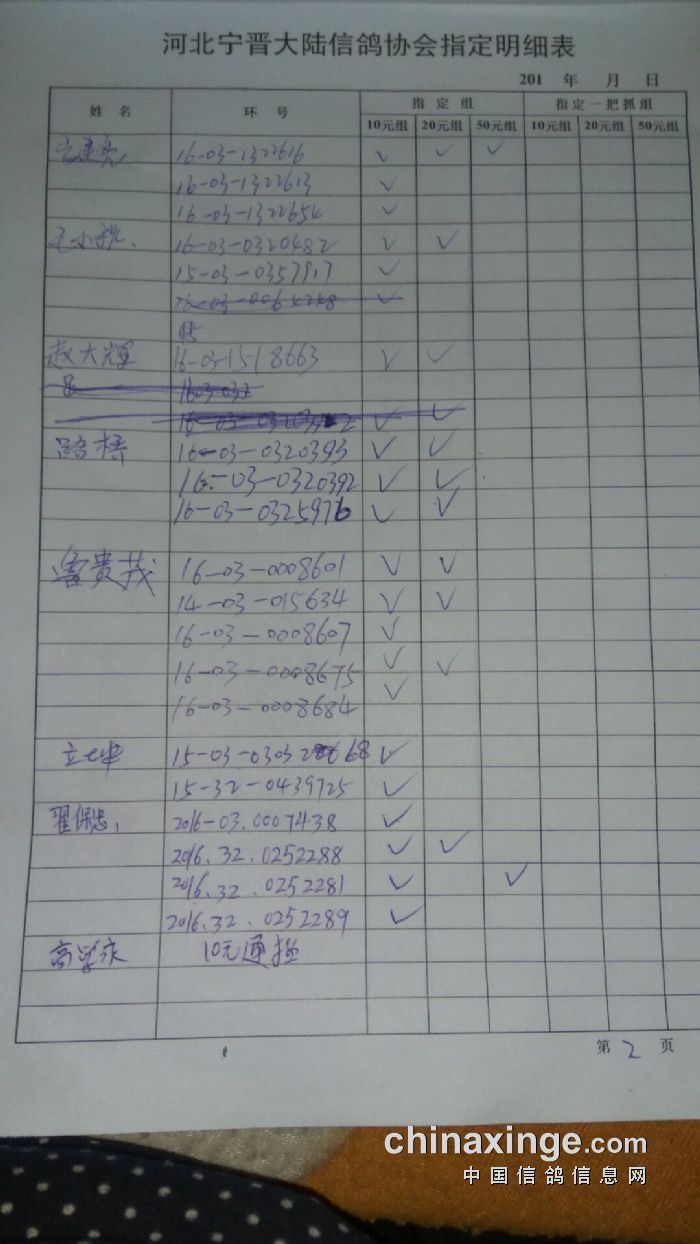 河北宁晋大陆信鸽协会指定明细表
201 年 月 日
姓 名 环 号 指 定 组 指 定 一 把 抓 组
10元组 20元组 50元组 10元组 20元组 50元组
16-03-1322616 ✓ ✓ ✓
16-03-1322613 ✓
16-03-1322654 ✓
王小 16-03-0320482 ✓ ✓
15-03-0357917 ✓
赵大辉 16-03-1518663 ✓ ✓
路桥 16-03-0320393 ✓ ✓
16-03-0320392 ✓ ✓
16-03-0325976 ✓ ✓
贵茂 16-03-0008601 ✓ ✓
14-03-015634 ✓ ✓
16-03-0008607 ✓
16-03-0008675 ✓ ✓
16-03-0008684 ✓
15-03-0303 68 ✓
15-32-0439725 ✓
翟保忠 2016-03.0007438 ✓
2016.32.0252288 ✓ ✓
2016.32.0252281 ✓ ✓
2016.32.0252289 ✓
高 10元通
第 2 页
chinaxinge.com
中国信鸽信息网